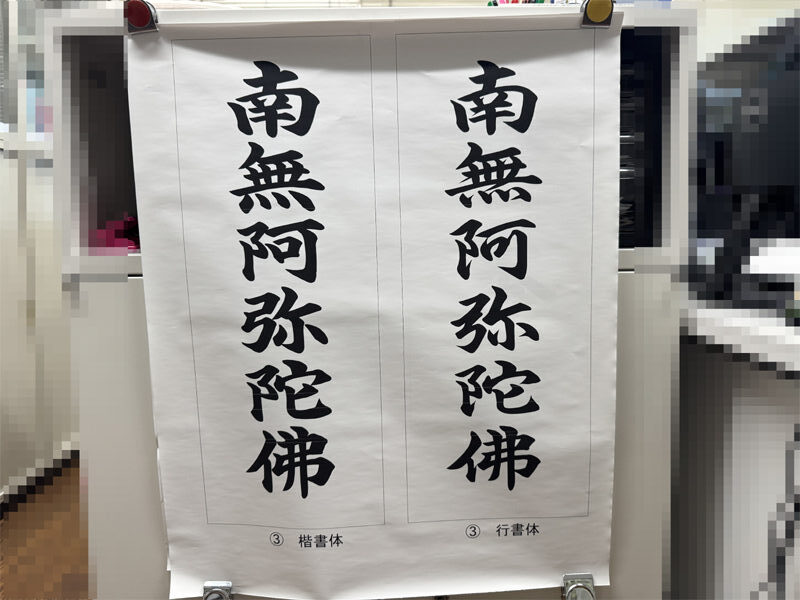 南無阿弥陀佛
③ 楷書体
南無阿弥陀佛
③ 行書体